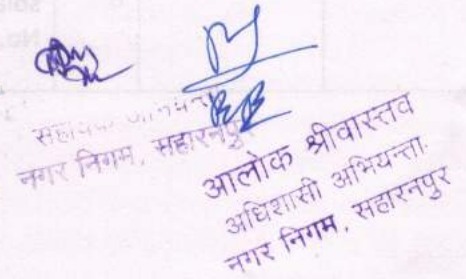 सहायक अभियन्ता
नगर निगम, सहारनपुर
आलोक श्रीवास्तव
अधिशासी अभियन्ता
नगर निगम, सहारनपुर